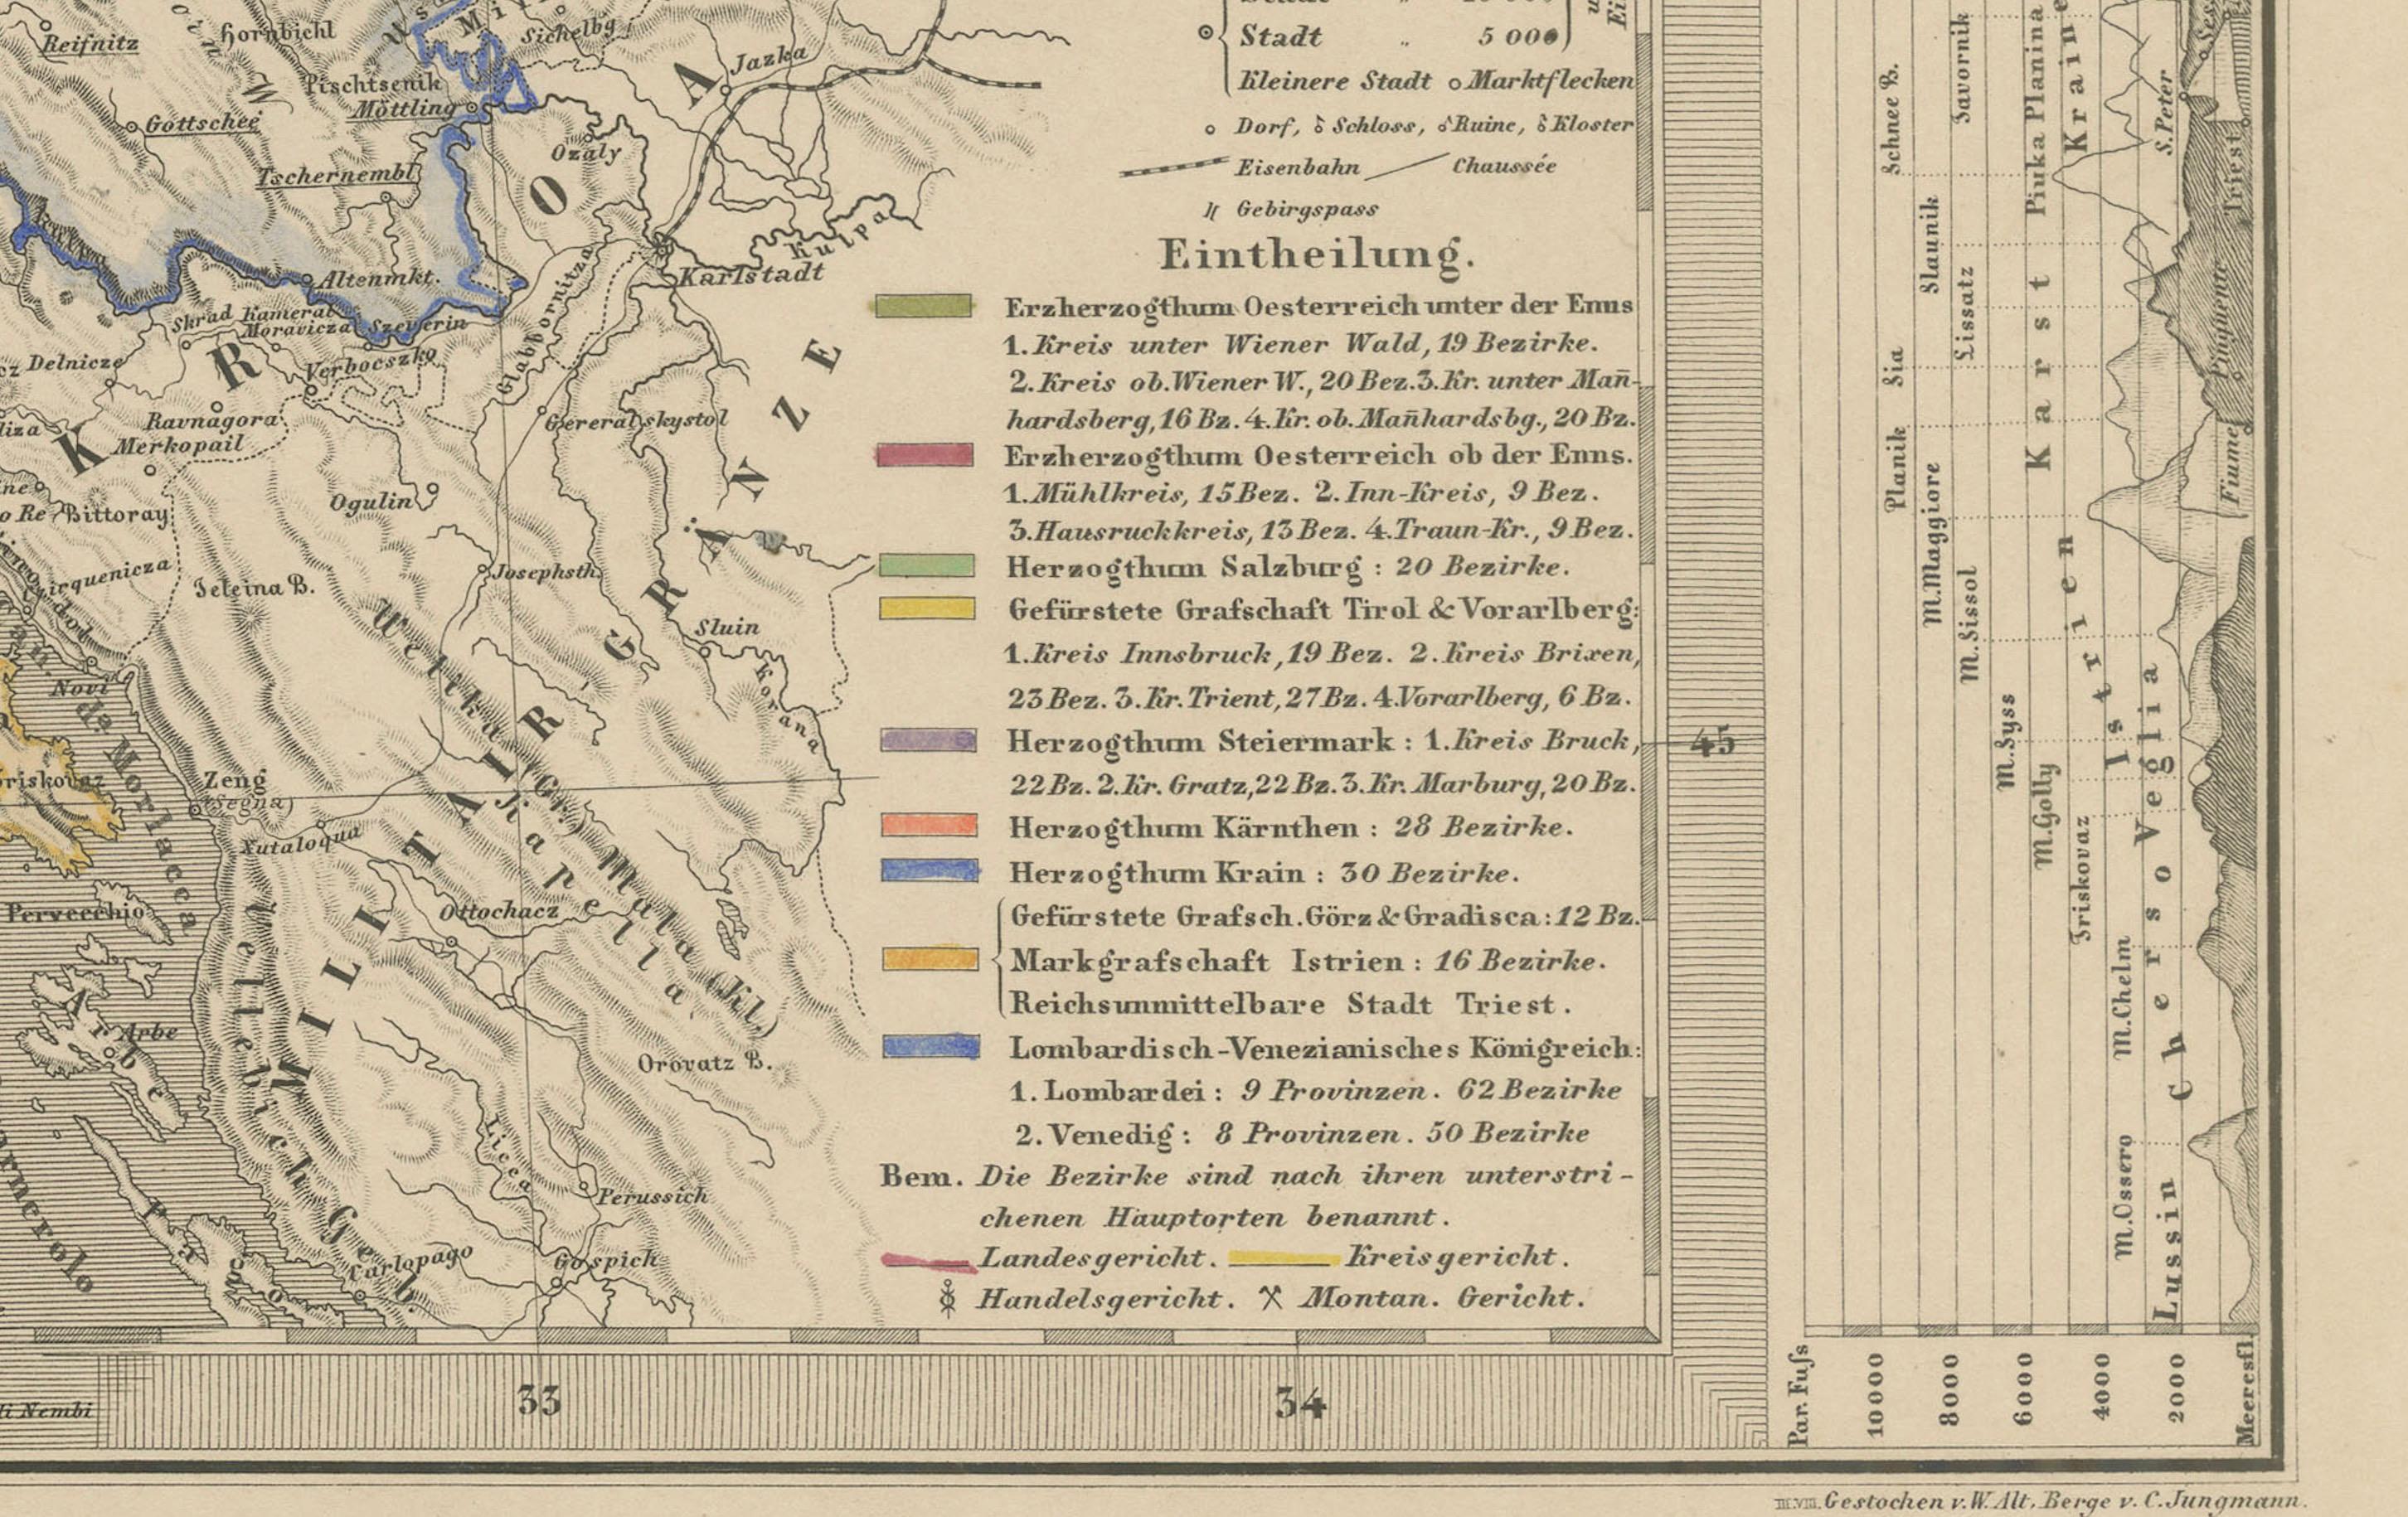 Reifnitz
Hornbichl
Sichelbg.
Jazka
Pischtsenik
Möttling
Gottschee
Ozaly
Tschernembl
Altenmkt.
Karlstadt
Kulpa
Skrad
Kameral
Moravicza
Szeverin
Delnicze
Verboeszko
Glabbornitza
Ravnagora
Merkopail
Gereralskystol
Ogulin
Bittoray
Josephsth.
Jeleina B.
Sluin
Korana
Novi
Zeng
(Segna)
Xutaloqua
Ottochacz
Pervecchio
Arbe
Arbe
Orovatz B.
Licca
Perussich
Carlopago
Gospich
Pago
Welika (Gr.)
Mala (Kl.)
Kapella
Vellebich Geb.
MILITAIR GRÄNZE
KROA
Stadt „ 5 000
Kleinere Stadt Marktflecken
Dorf, Schloss, Ruine, Kloster
Eisenbahn Chaussée
Gebirgspass
Eintheilung.
Erzherzogthum Oesterreich unter der Enns
1. Kreis unter Wiener Wald, 19 Bezirke.
2. Kreis ob. Wiener W., 20 Bez. 3. Kr. unter Mañ-
hardsberg, 16 Bz. 4. Kr. ob. Mañhardsbg., 20 Bz.
Erzherzogthum Oesterreich ob der Enns.
1. Mühlkreis, 15 Bez. 2. Inn-Kreis, 9 Bez.
3. Hausruckkreis, 13 Bez. 4. Traun-Kr., 9 Bez.
Herzogthum Salzburg : 20 Bezirke.
Gefürstete Grafschaft Tirol & Vorarlberg:
1. Kreis Innsbruck, 19 Bez. 2. Kreis Brixen,
23 Bez. 3. Kr. Trient, 27 Bz. 4. Vorarlberg, 6 Bz.
Herzogthum Steiermark : 1. Kreis Bruck,
22 Bz. 2. Kr. Gratz, 22 Bz. 3. Kr. Marburg, 20 Bz.
Herzogthum Kärnthen : 28 Bezirke.
Herzogthum Krain : 30 Bezirke.
Gefürstete Grafsch. Görz & Gradisca : 12 Bz.
Markgrafschaft Istrien : 16 Bezirke.
Reichsunmittelbare Stadt Triest.
Lombardisch-Venezianisches Königreich:
1. Lombardei : 9 Provinzen. 62 Bezirke
2. Venedig : 8 Provinzen. 50 Bezirke
Bem. Die Bezirke sind nach ihren unterstri-
chenen Hauptorten benannt.
Landesgericht. Kreisgericht.
Handelsgericht. Montan. Gericht.
33
34
45
di Nembi
Schnee B.
Javornik
Piuka Planina
Kraine
S. Peter
Triest
Slaunik
Lissatz
Karst
Pinguente
Sia
Planik
Fiume
M. Maggiore
M. Sissol
Istrien
M. Syss
M. Golly
Veglia
Friskovaz
M. Chelm
Cherso
M. Ossero
Lussin
Par. Fuſs
10000
8000
6000
4000
2000
Meeresfl.
Gestochen v. W. Alt, Berge v. C. Jungmann.